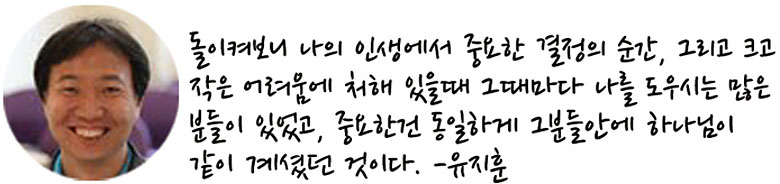 돌이켜보니 나의 인생에서 중요한 결정의 순간, 그리고 크고
작은 어려움에 처해 있을때 그때마다 나를 도우시는 많은
분들이 있었고, 중요한건 동일하게 그분들안에 하나님이
같이 계셨던 것이다. -유지훈